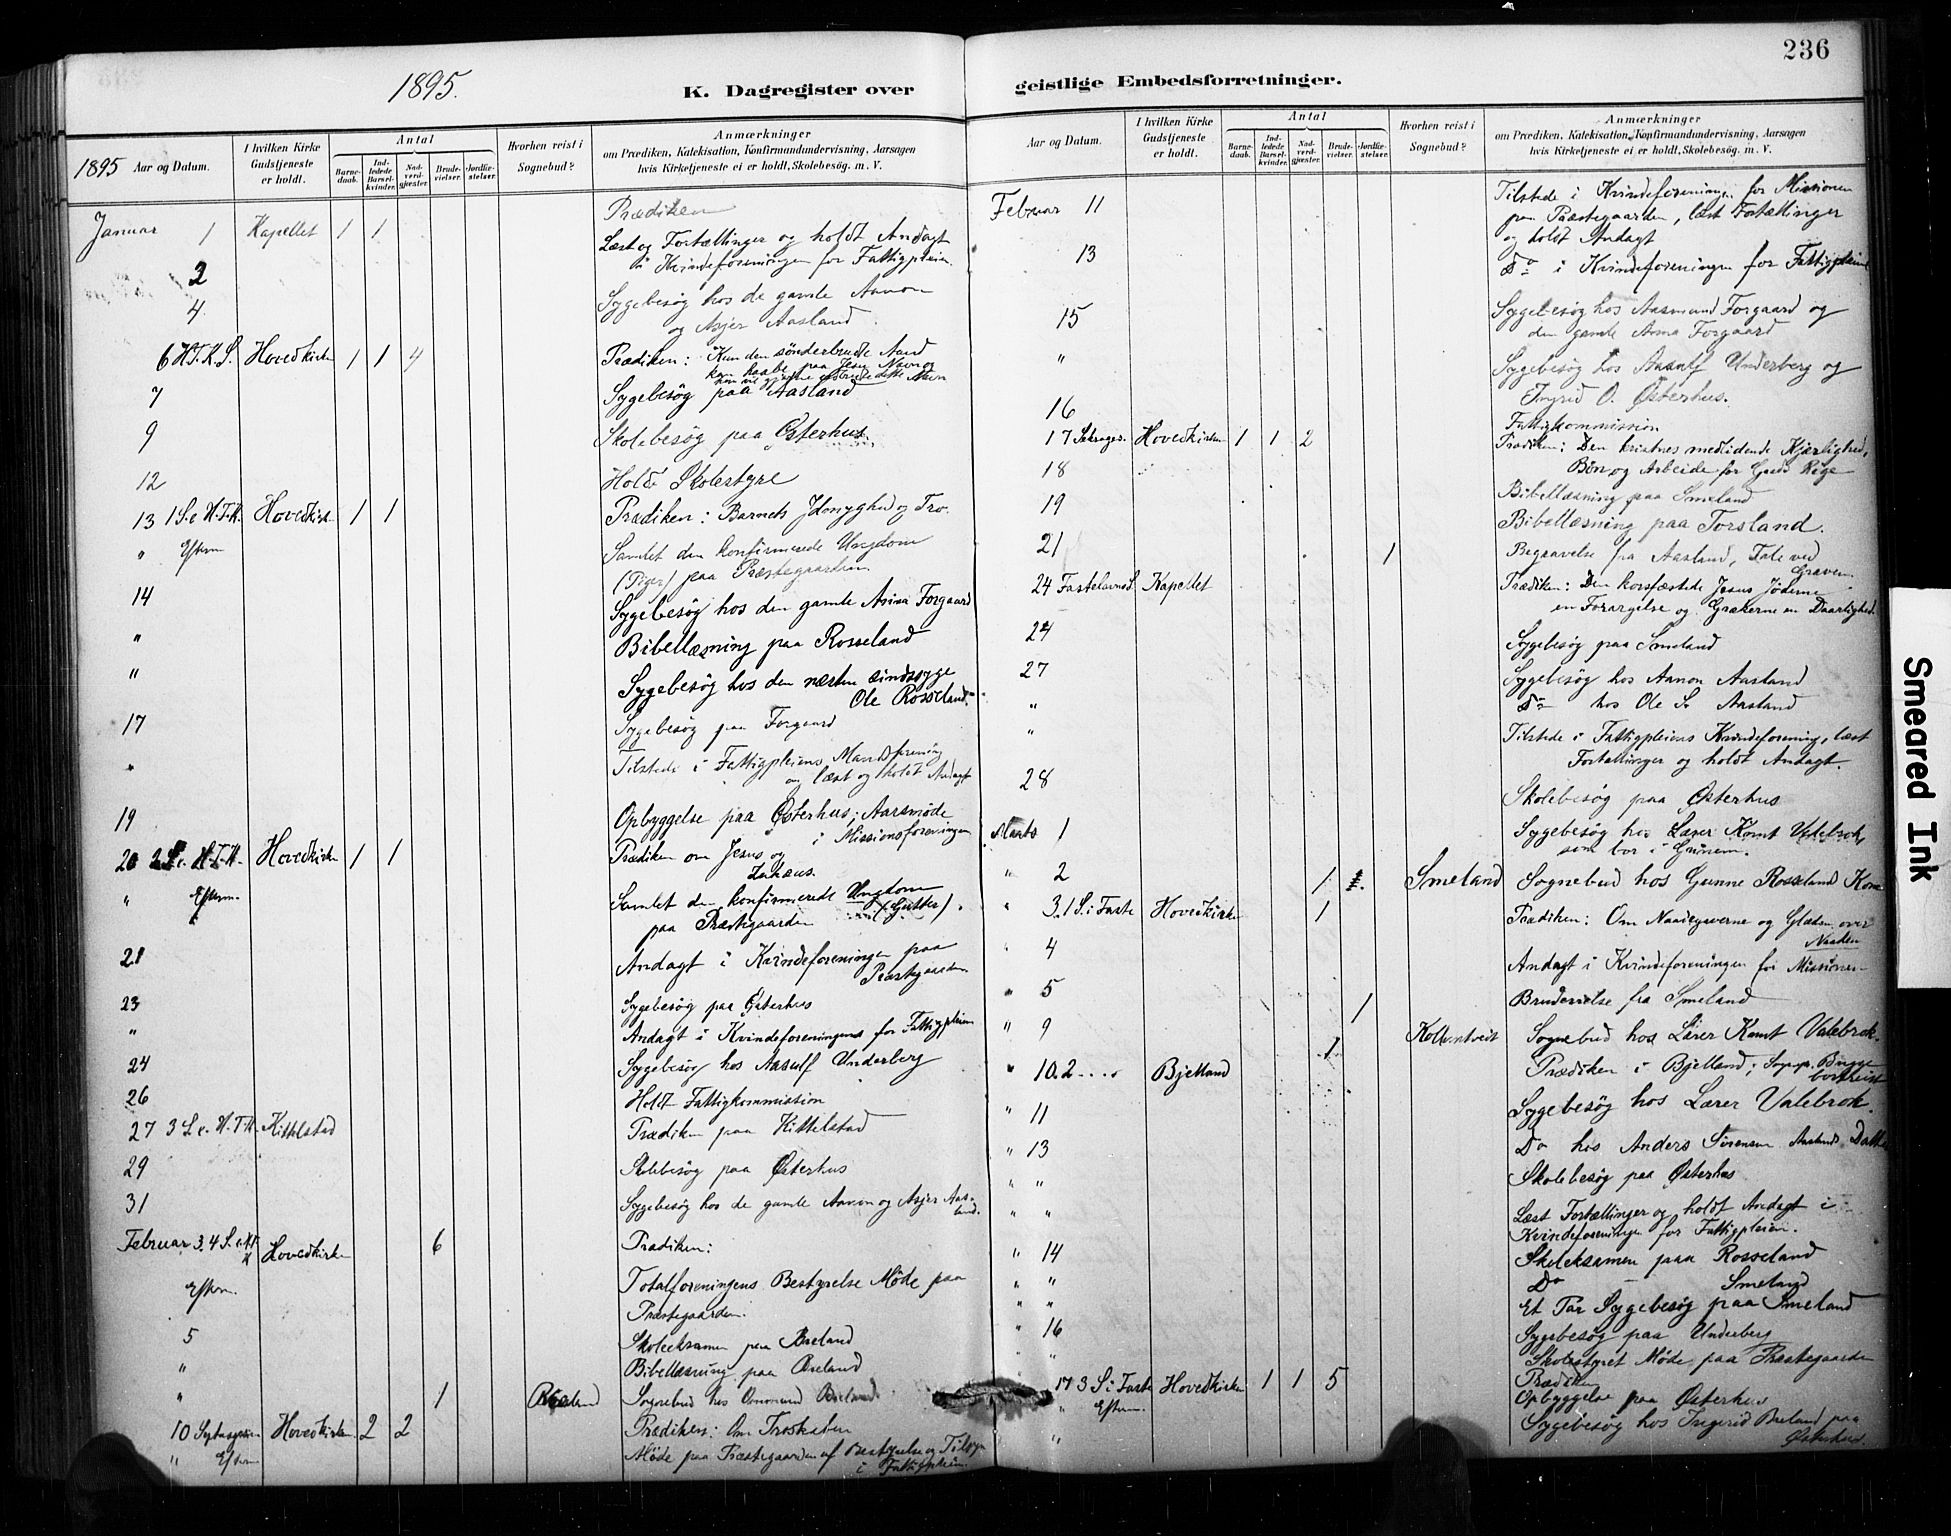 236
1895.
K. Dagregister over
geistlige Embedsforretninger.
1895 Aar og Datum.
I hvilken Kirke Gudstjeneste er holdt.
Antal
Barnedaab.
Indledede Barselkvinder.
Nadverdgjæster
Brudevielser.
Jordfæstelser.
Hvorhen reist i Sognebud?
Anmærkninger
om Prædiken, Katekisation, Konfirmandundervisning, Aarsagen
hvis Kirketjeneste ei er holdt, Skolebesøg. m. V.
Januar 1 Kapellet 1 1 Prædiken
2 Læst og Fortællinger og holdt Andagt
i Kvindeforeningen for Fattigpleien.
4. Sygebesøg hos de gamle Aanon
og Asjer Aasland
6 H.T.K.S. Hovedkirken 1 1 4 Prædiken: Kun den sønderbrudte Aand
kan haabe paa Jesu Navn og
7 Sygebesøg paa Aasland
9 Skolebesøg paa Østerhus.
12 Holdt Skolestyre
13 1 S. e. H.T.K. Hovedkirk. 1 1 Prædiken: Barnets Ydmyghed og Tro.
" Efterm Samlet den konfirmerede Ungdom
(Piger) paa Præstegaarden.
14 Sygebesøg hos den gamle Anna Forgaard
" Bibellæsning paa Rosseland
" Sygebesøg hos den næsten sindssyge
Ole Rosseland.
17 Sygebesøg paa Forgaard
" Tilstede i Fattigpleiens Mandsforening
og læst og holdt Andagt
19 Opbyggelse paa Østerhus; Aarsmøde
i Missionsforeningen
20 2 S. e. H.T.K. Hovedkirken 1 1 Prædiken om Jesus og
Zakæus.
" Efterm. Samlet den konfirmerede Ungdom
paa Præstegaarden (Gutter).
21 Andagt i Kvindeforeningen paa
Præstegaarden
23 Sygebesøg paa Østerhus
" Andagt i Kvindeforeningen for Fattigpleien
24 Sygebesøg hos Aasulf Underberg
26 Holdt Fattigkommission
27 3 S. e. H.T.K. Kittelstad Prædiken paa Kittelstad
29 Skolebesøg paa Østerhus
31 Sygebesøg hos de gamle Aanon og Asjer Aasland.
Februar 3. 4 S. e. H.T.K Hovedkirken 6 Prædiken:
Efterm. Totalforeningens Bestyrelse Møde paa
Præstegaarden.
5 Skoleeksamen paa Breland
" Bibellæsning paa Breland
" 1 Breland Sognebud hos Omund Breland
10 Septuages. Hovedkirken 2 2 Prædiken: Om Troskaben
" Efterm Møde paa Præstegaarden af Bestyrelse og Tilsyn
i Fattigpleien.
Aar og Datum.
I hvilken Kirke Gudstjeneste er holdt.
Antal
Barnedaab.
Indledede Barselkvinder.
Nadverdgjæster.
Brudevielser.
Jordfæstelser.
Hvorhen reist i Sognebud?
Anmærkninger
om Prædiken, Katekisation, Konfirmandundervisning, Aarsagen
hvis Kirketjeneste ei er holdt, Skolebesøg. m. V.
Februar 11 Tilstede i Kvindeforeningen for Missionen
paa Præstegaarden, læst Fortællinger
og holdt Andagt
13 Do i Kvindeforeningen for Fattigpleien
15 Sygebesøg hos Aasmund Forgaard og
den gamle Anna Forgaard
" Sygebesøg hos Aasulf Underberg og
Ingrid O. Østerhus.
16 Fattigkommission
17 Seksages. Hovedkirken 1 1 2 Prædiken: Den kristnes medlidende Kjærlighed,
Bøn og Arbeide for Guds Rige
18 Bibellæsning paa Smeland
19 Bibellæsning paa Torsland.
21 1 Begravelse fra Aasland, Tale ved
Graven
24 Fastelavns S. Kapellet Prædiken: Den korsfæstede Jesus Jøderne
en Forargelse og Grækerne en Daarlighed.
24 Sygebesøg paa Smeland
27 Sygebesøg hos Aanon Aasland
" Do hos Ole S. Aasland
" Tilstede i Fattigpleiens Kvindeforening, læst
Fortællinger og holdt Andagt.
28 Skolebesøg paa Østerhus
Marts 1 Sygebesøg hos Lærer Komt Valebrok,
som bor i
" 2 1 Smeland Sognebud hos Gunne Rosseland Kone
" 3. 1 S. i Faste Hovedkirken 1 Prædiken: Om Naadegaverne og Glæden over
Naaden
" 4 Andagt i Kvindeforeningen for Missionen
" 5 1 Brudevielse fra Smeland
" 9 1 Sognebud hos Lærer Komt Valebrok.
" 10. 2 .... Bjelland Prædiken i Bjelland; Sogнepr. Bugge
bortreist
" 11 Sygebesøg hos Lærer Valebrok.
" 13 Do hos Anders Sørensen Aaslands Datter
" " Skolebesøg paa Østerhus
" " Læst Fortællinger og holdt Andagt i
Kvindeforeningen for Fattigpleien.
" 14 Skoleeksamen paa Rosseland
" " Do - Smeland
" " Et Par Sygebesøg paa Smeland
" 16 Sygebesøg paa Underberg
" " Skolestyret Møde paa Præstegaarden
" 17 3 S. i Faste Hovedkirken 1 1 5 Prædiken
" Efterm. Opbyggelse paa Østerhus
" Sygebesøg hos Ingerid Breland paa
Østerhus.
Smeared Ink